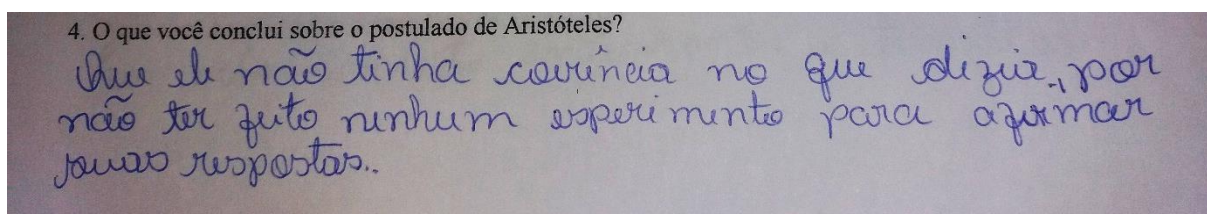 4. O que você conclui sobre o postulado de Aristóteles?
Que ele não tinha coerência no que dizia, por
não ter feito nenhum esperimento para afirmar
suas respostas..